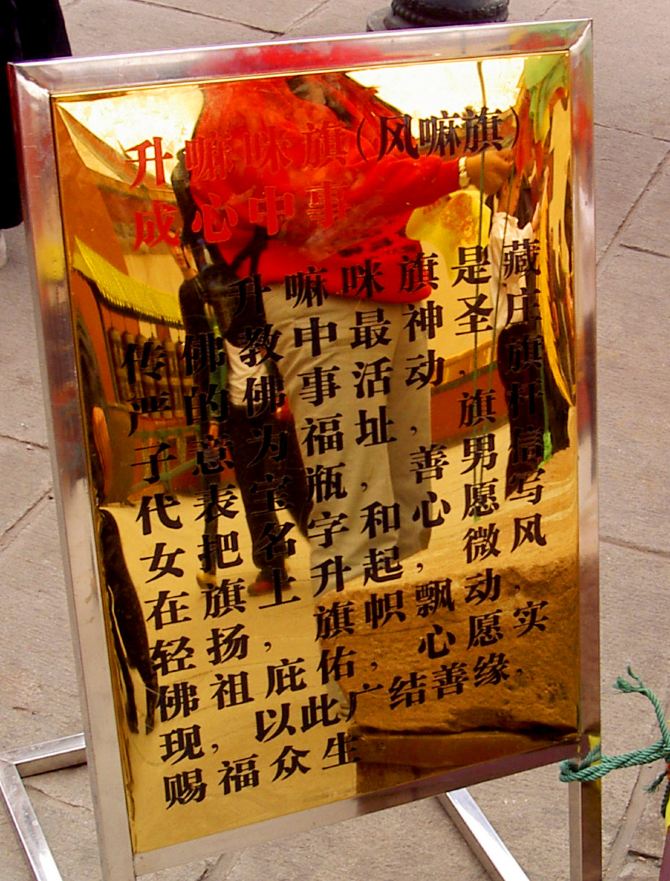 升嘛咪旗(风嘛旗)
成心中事
升嘛咪旗是藏
传佛教中最神圣、庄
严的佛事活动,旗
子意为福址,旗杆
代表宝瓶,善男信
女把名字和心愿写
在旗上,升起,微风
轻扬,旗帜飘动,
佛祖庇佑,心愿实
现,以此广结善缘,
赐福众生